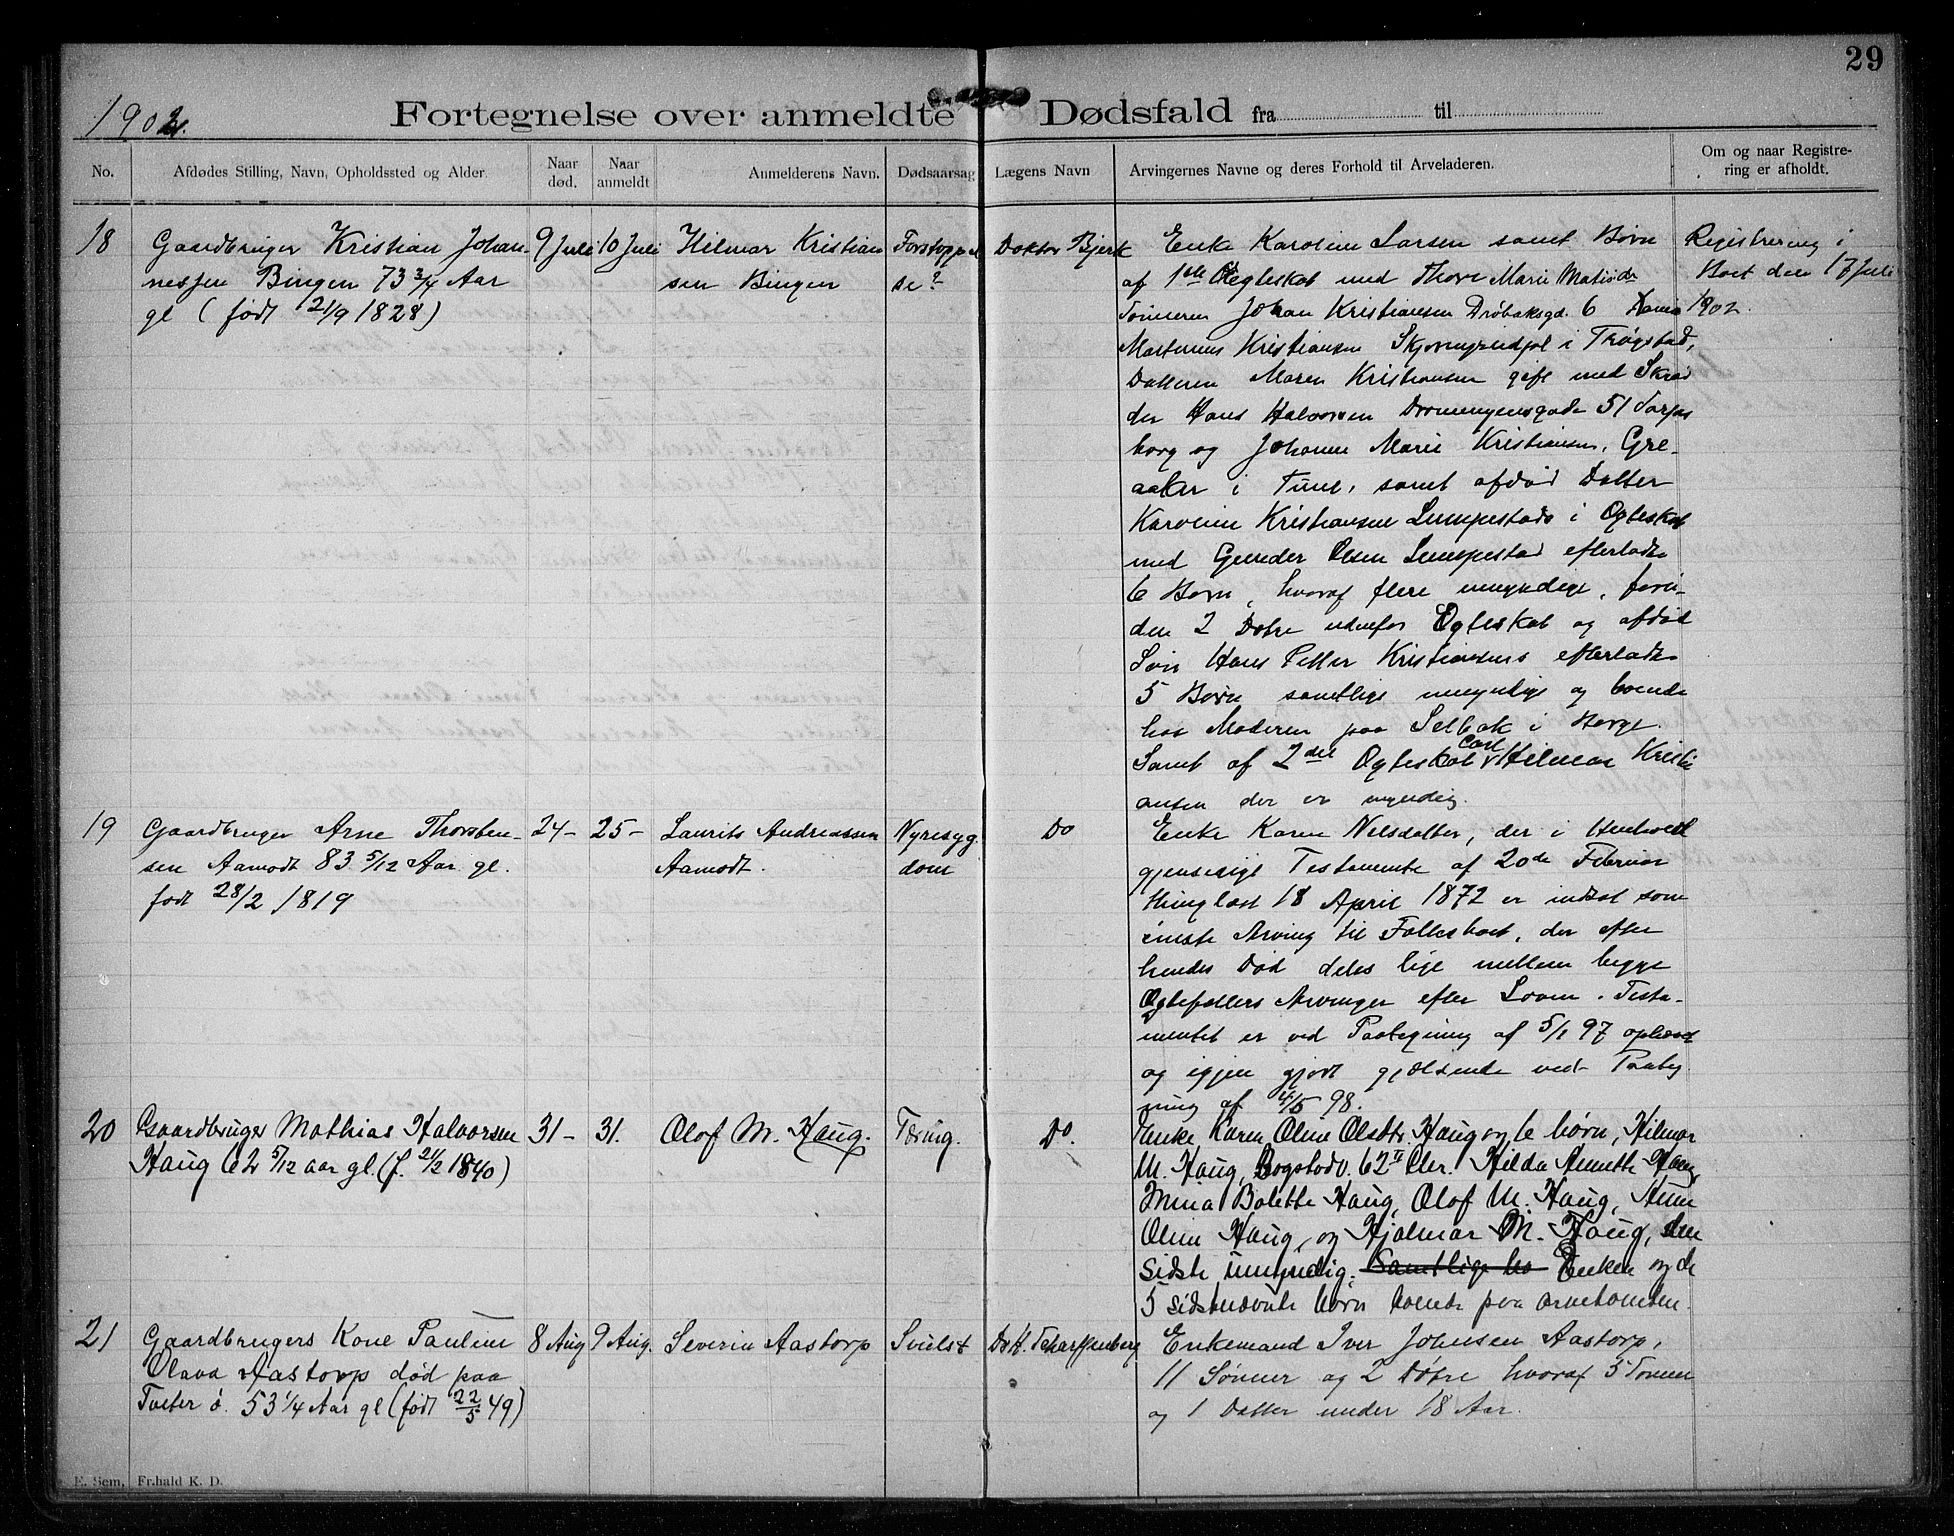 29
1902.
Fortegnelse over anmeldte Dødsfald fra til
No.
Afdødes Stilling, Navn, Opholdssted og Alder.
Naar død.
Naar anmeldt
Anmelderens Navn.
Dødsaarsag
Lægens Navn
Arvingernes Navne og deres Forhold til Arveladeren.
Om og naar Registre-
ring er afholdt.
18
Gaardbruger Kristian Johan-
nessen Bingen 73 3/4 Aar
gl (født 21/9 1828)
9 Juli
10 Juli
Hilmar Kristian
sen Bingen
Forstoppel
se?
Doktor Bjerk
Enke Karoline Larsen samt Børn
af 1ste Ægteskab med Thore Marie
Sønnerne Johan Kristiansen Drøbaksgd. 6
Martinius Kristiansen i Trøgstad,
Datteren Maren Kristiansen gift med Skræd
der Hans Halvorsen 51 Sarps
borg og Johanne Marie Kristiansen, Gre-
aaker i Tune, samt afdød Datter
Karoline Kristiansen Lumpestads i Ægteskab
med Gunder Olsen Lumpestad efterladte
6 Børn, hvoraf flere umyndige, foru-
den 2 Døtre udenfor Ægteskab og afdød
Søn Hans Petter Kristiansens efterladte
5 Børn samtlige umyndige og boende
hos Moderen paa Selbak i Borge.
Samt af 2det Ægteskab Carl Hilmar Kristi
ansen der er myndig.
Registrering i
Boet den 17 Juli
1902.
19
Gaardbruger Arne Thorsten-
sen Aamodt 83 5/12 Aar gl.
født 28/2 1819
24-
25-
Laurits Andreassen
Aamodt.
Nyresyg
dom
Do
Enke Karen Nilsdatter, der i Henhold
gjensidigt Testamente af 20de Februar
thinglæst 18 April 1872 er indsat som
eneste Arving til Fællesboet, der efter
hendes Død deles lige mellem begge
Ægtefællers Arvinger efter Loven. Testa-
mentet er ved Paategning af 5/1 97 ophævet
og igjen gjort gjældende ved Paateg
ning af 4/5 98.
20
Gaardbruger Mathias Halvorsen
Haug 62 5/12 aar gl. (f. 21/2 1840)
31-
31.
Olof M. Haug.
Tæring.
Do.
Enke Karen Oline Olsdtr. Haug og 6 børn, Hilmar
M. Haug, Bogstadv. 62 II Chr. Hilda Annette Haug,
Inina Bolette Haug, Olof M. Haug,
Oline Haug, og Hjalmar M. Haug, den
sidste umyndig. Samtlige bo Enken og de
5 sidstnævnte børn boende paa arnetomten.
21
Gaardbrugers Kone Pauline
Olava Aastorp død paa
Toeter ø. 53 1/4 Aar gl (født 22/5 49)
8 Aug
9 Aug.
Severin Aastorp
Svulst
Dokt. Scharffenberg
Enkemand Iver Johnsen Aastorp,
11 Sønner og 2 Døtre hvoraf 5 Sønner
og 1 Datter under 18 Aar.
E. Sem, Fr.hald K. D.